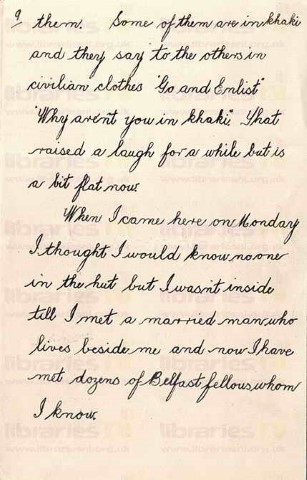 9 them. Some of them are in khaki
and they say to the others in
civilian clothes "Go and Enlist"
"Why arent you in khaki". That
raised a laugh for a while but is
a bit flat now.
When I came here on Monday
I thought I would know no one
in the hut but I wasn't inside
till I met a married man who
lives beside me and now I have
met dozens of Belfast fellows whom
I know.